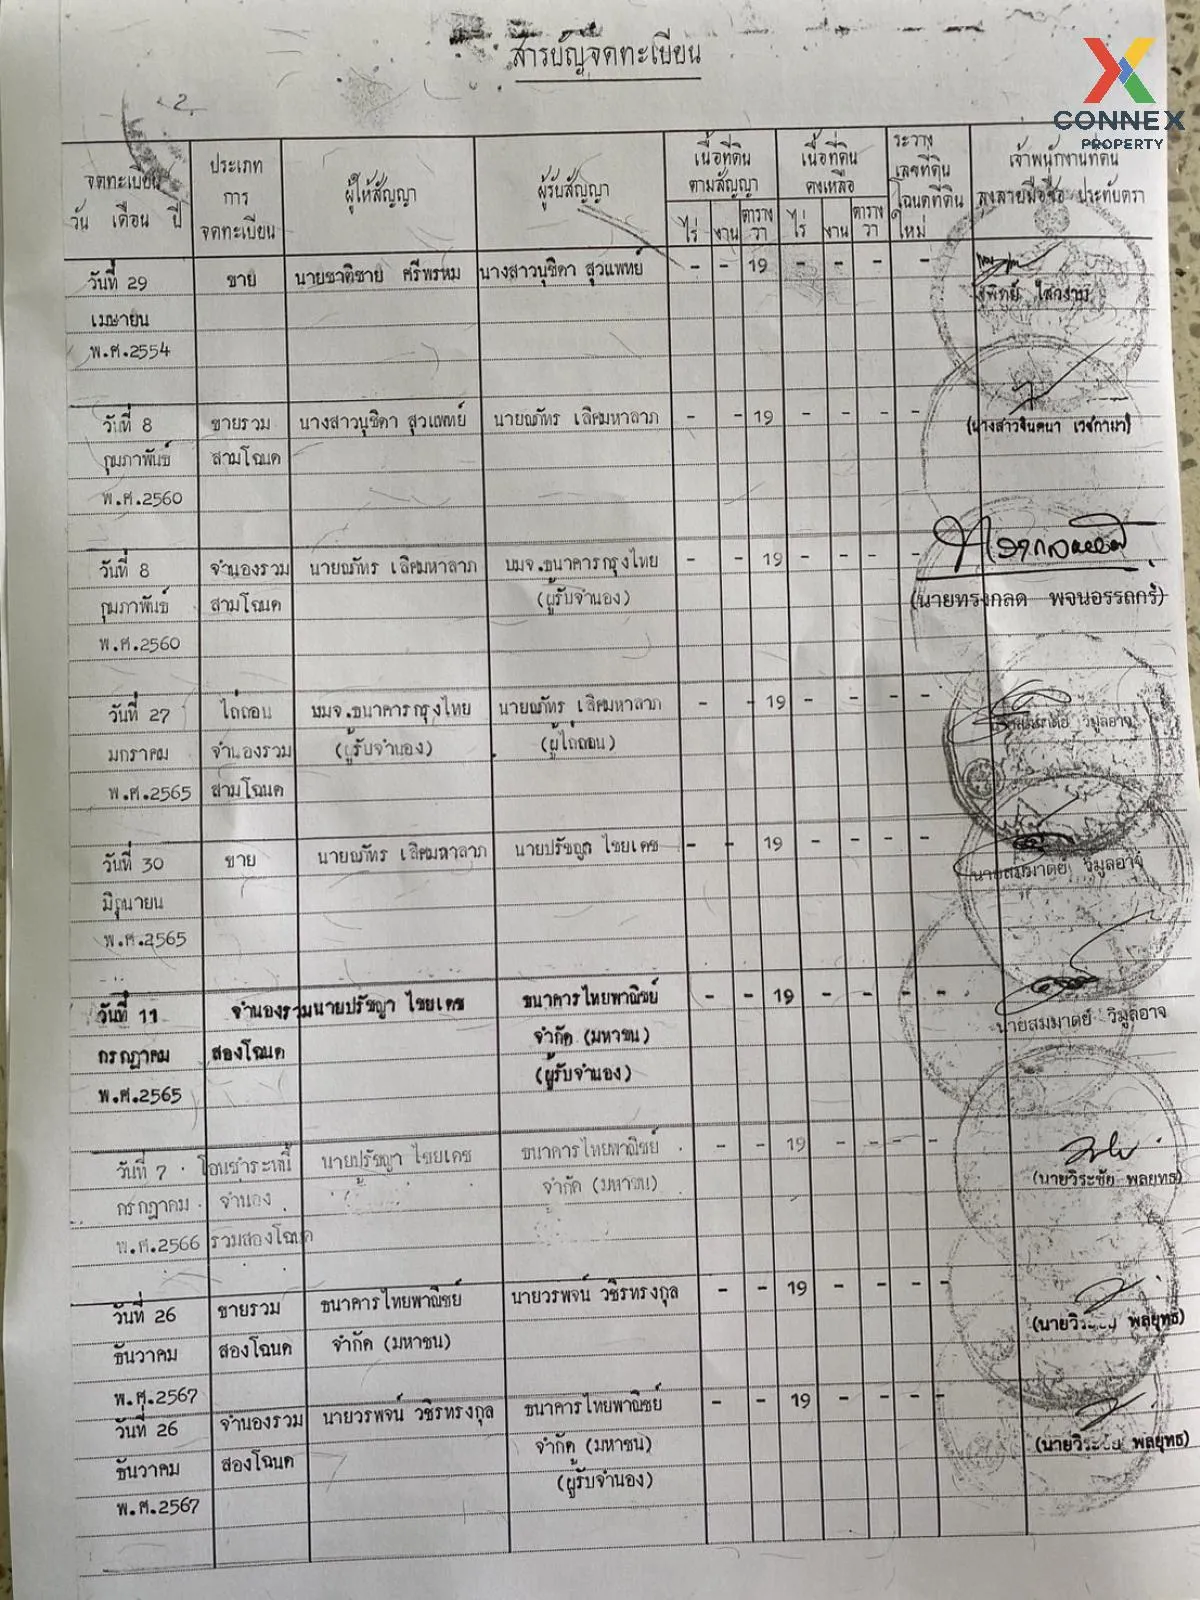 สารบัญจดทะเบียน
2
CONNEX
PROPERTY
จดทะเบียน
วัน เดือน ปี
ประเภท
การ
จดทะเบียน
ผู้ให้สัญญา
ผู้รับสัญญา
เนื้อที่ดิน
ตามสัญญา
ไร่ งาน ตาราง
วา
เนื้อที่ดิน
คงเหลือ
ไร่ งาน ตาราง
วา
ระวาง
เลขที่ดิน
โฉนดที่ดิน
ใหม่
เจ้าพนักงานที่ดิน
ลงลายมือชื่อ ประทับตรา
วันที่ 29 ขาย นายชาติชาย ศรีพรหม นางสาวนุชิดา สุวแพทย์ - - 19 - - - -
เมษายน
พ.ศ.2554
วันที่ 8 ขายรวม นางสาวนุชิดา สุวแพทย์ นายณภัทร เลิศมหาลาภ - - 19 - - - -
กุมภาพันธ์ สามโฉนด
พ.ศ.2560
วันที่ 8 จำนองรวม นายณภัทร เลิศมหาลาภ บมจ.ธนาคารกรุงไทย - - 19 - - - -
กุมภาพันธ์ สามโฉนด (ผู้รับจำนอง) (นายทรงกลด พจนอรรถกร)
พ.ศ.2560
วันที่ 27 ไถ่ถอน บมจ.ธนาคารกรุงไทย นายณภัทร เลิศมหาลาภ - - 19 - - - - วิมูลอาจ
มกราคม จำนองรวม (ผู้รับจำนอง) (ผู้ไถ่ถอน)
พ.ศ.2565 สามโฉนด
วันที่ 30 ขาย นายณภัทร เลิศมหาลาภ นายปรัชญา ไชยเดช - - 19 - - - - นายสมมาตย์ วิมูลอาจ
มิถุนายน
พ.ศ.2565
วันที่ 11 จำนองรวม นายปรัชญา ไชยเดช ธนาคารไทยพาณิชย์ - - 19 - - - - นายสมมาตย์ วิมูลอาจ
กรกฎาคม สองโฉนด จำกัด (มหาชน)
พ.ศ.2565 (ผู้รับจำนอง)
วันที่ 7 โอนชำระหนี้ นายปรัชญา ไชยเดช ธนาคารไทยพาณิชย์ - - 19 - - - -
กรกฎาคม จำนอง จำกัด (มหาชน) (นายวิระชัย พลยุทธ)
พ.ศ.2566 รวมสองโฉนด
วันที่ 26 ขายรวม ธนาคารไทยพาณิชย์ นายวรพจน์ วชิรทรงกุล - - 19 - - - -
ธันวาคม สองโฉนด จำกัด (มหาชน) (นายวิระชัย พลยุทธ)
พ.ศ.2567
วันที่ 26 จำนองรวม นายวรพจน์ วชิรทรงกุล ธนาคารไทยพาณิชย์ - - 19 - - - -
ธันวาคม สองโฉนด จำกัด (มหาชน) (นายวิระชัย พลยุทธ)
พ.ศ.2567 (ผู้รับจำนอง)